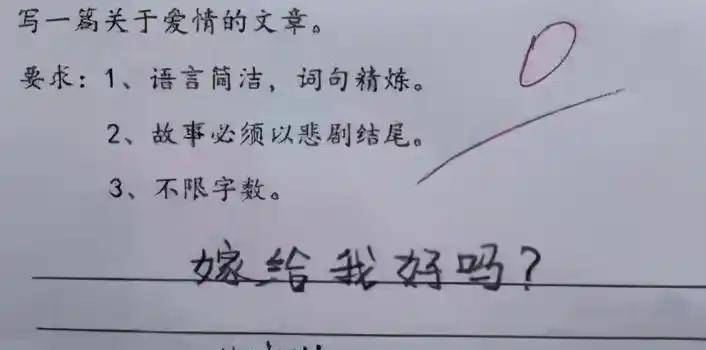 写一篇关于爱情的文章。
要求：1、语言简洁，词句精炼。
2、故事必须以悲剧结尾。
3、不限字数。
嫁给我好吗？